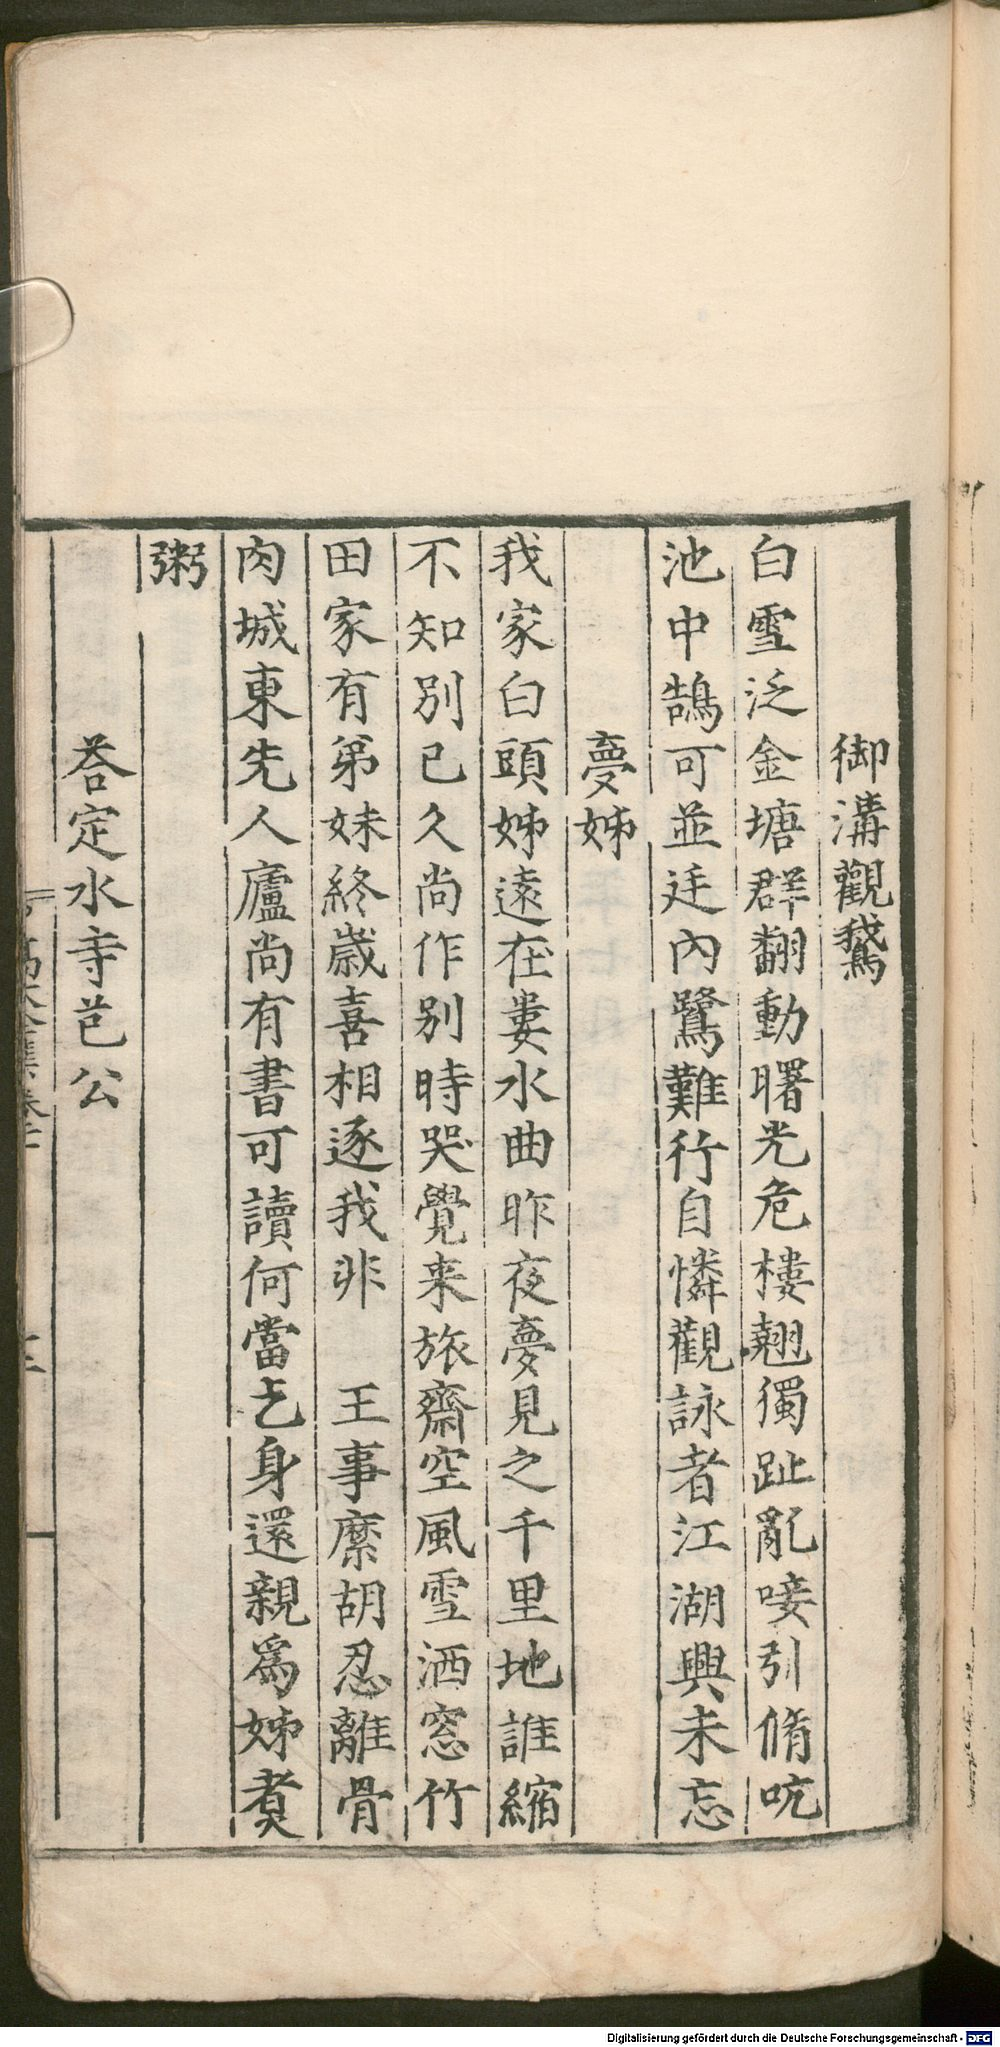 御溝觀鵞
白雪泛金塘群翻動曙光危樓翹獨趾亂唼引脩吭
池中鵠可並廷內鷺難行自憐觀詠者江湖興未忘
夢姊
我家白頭姊遠在婁水曲昨夜夢見之千里地誰縮
不知別已久尚作别時哭覺来旅齋空風雪洒窓竹
田家有弟妹終歲喜相逐我非　王事縻胡忍離骨
肉城東先人廬尚有書可讀何當乞身還親爲姊煑
粥
荅定水寺芑公
Digitalisierung gefördert durch die Deutsche Forschungsgemeinschaft - DFG